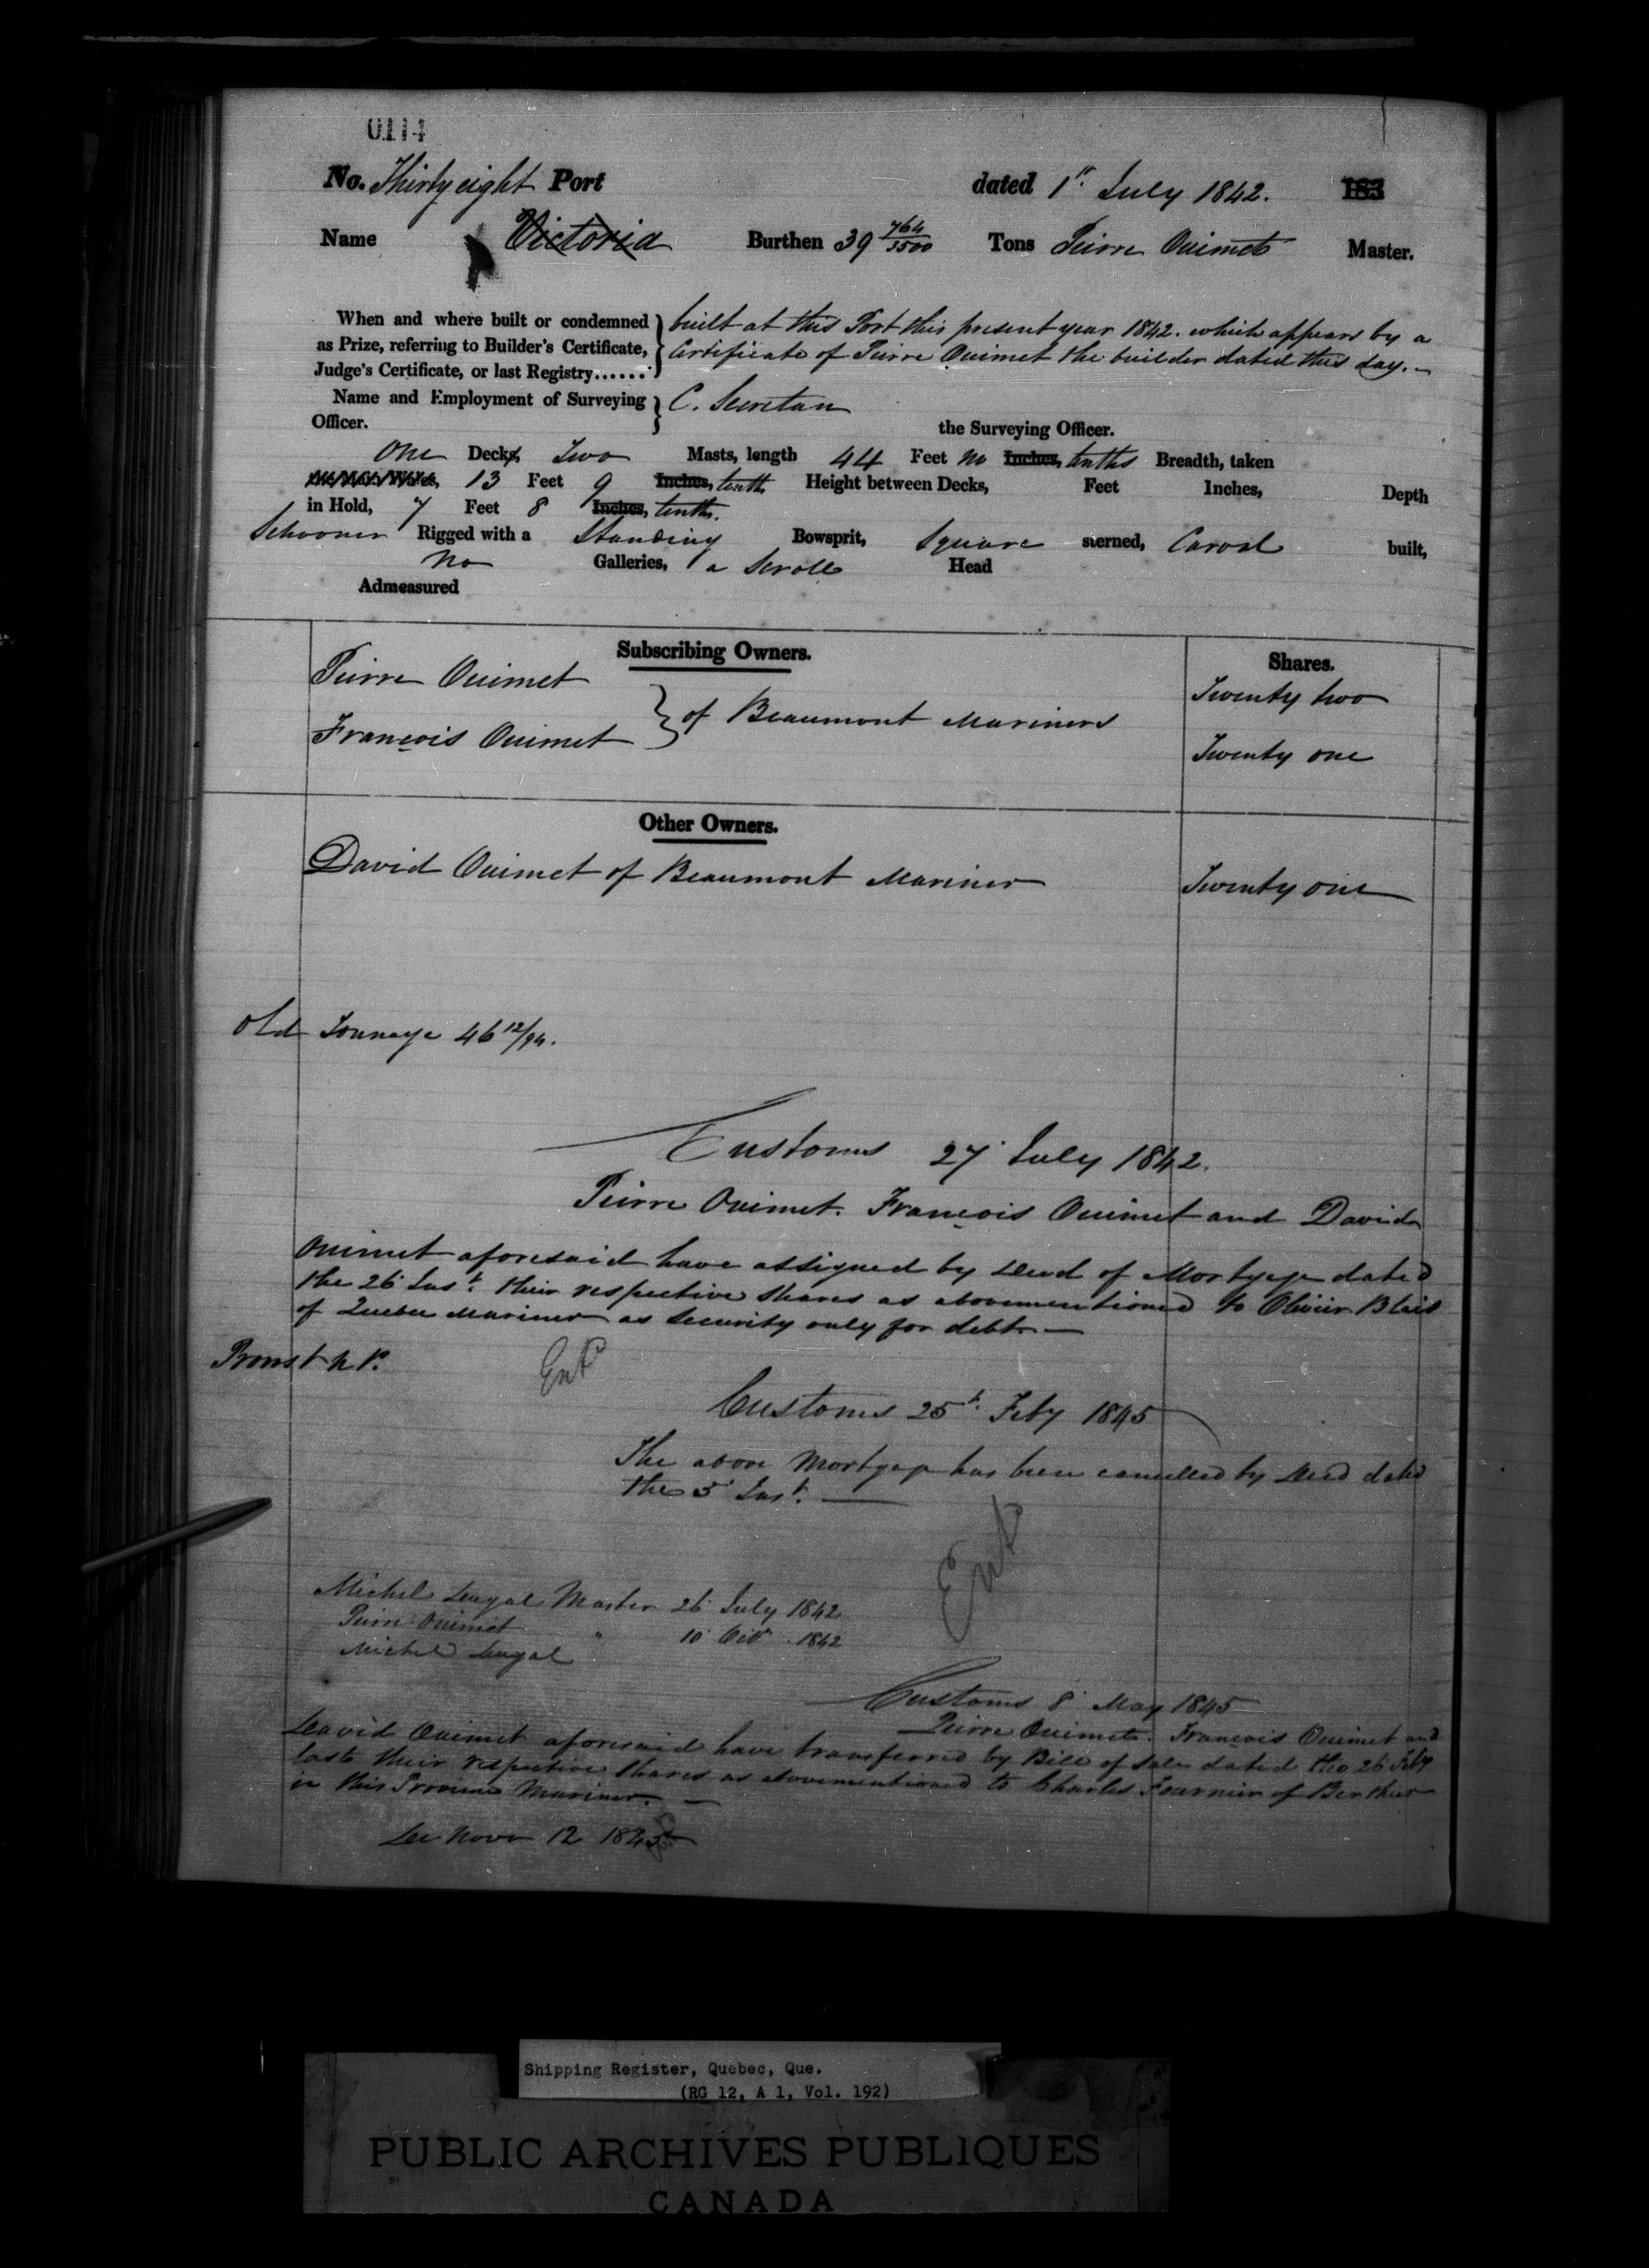 0114
No. Thirty eight Port dated 1st July 1842. 183
Name Victoria Burthen 39 764/3500 Tons Pierre Ouimet Master.
When and where built or condemned as Prize, referring to Builder's Certificate, Judge's Certificate, or last Registry......
built at this Port this present year 1842. which appears by a
Certificate of Pierre Ouimet the builder dated this day.
Name and Employment of Surveying Officer. C. Secretan
the Surveying Officer.
One Decks, Two Masts, length 44 Feet no Inches, tenths Breadth, taken
13 Feet 9 Inches, tenths Height between Decks, Feet Inches, Depth
in Hold, 7 Feet 8 Inches, tenths.
Schooner Rigged with a Standing Bowsprit, Square sterned, Carvel built,
No Galleries, a Scroll Head
Admeasured
Subscribing Owners. Shares.
Pierre Ouimet Twenty two
of Beaumont Mariners
François Ouimet Twenty one
Other Owners.
David Ouimet of Beaumont Mariner Twenty one
Old Tonnage 46 12/94.
Customs 27 July 1842.
Pierre Ouimet. François Ouimet and David
Ouimet aforesaid have assigned by Deed of Mortgage dated
the 26 Inst. their respective shares as abovementioned to Olivier Blais
of Quebec Mariner as security only for debt
N.P.
Entd
Customs 25t. Feby 1845
The above Mortgage has been cancelled by Deed dated
the 5 Inst.
Entd
Michel Master 26 July 1842
Pierre Ouimet " 10 Octr. 1842
Michel
Customs 8 May 1845
Pierre Ouimet. Francois Ouimet and
David Ouimet aforesaid have transferred by Bill of Sale dated the 26 Feby
last their respective shares as abovementioned to Charles Fournier of Berthier
in this Province Mariner.
12 1845
Shipping Register, Quebec, Que.
(RG 12, A 1, Vol. 192)
PUBLIC ARCHIVES PUBLIQUES
CANADA